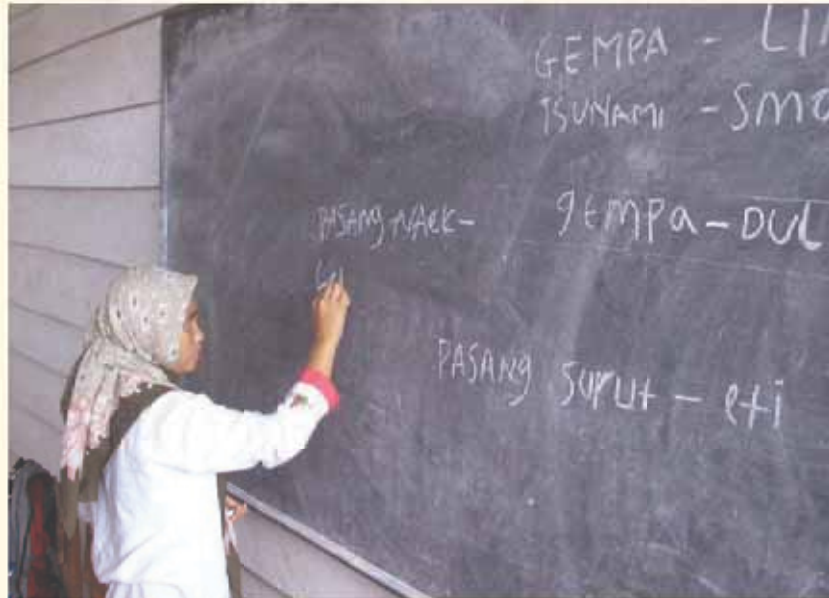 GEMPA - LI
TSUNAMI - SMO
PASANG NAEK -
gEMPA - DUL
PASANG SURUT - eti